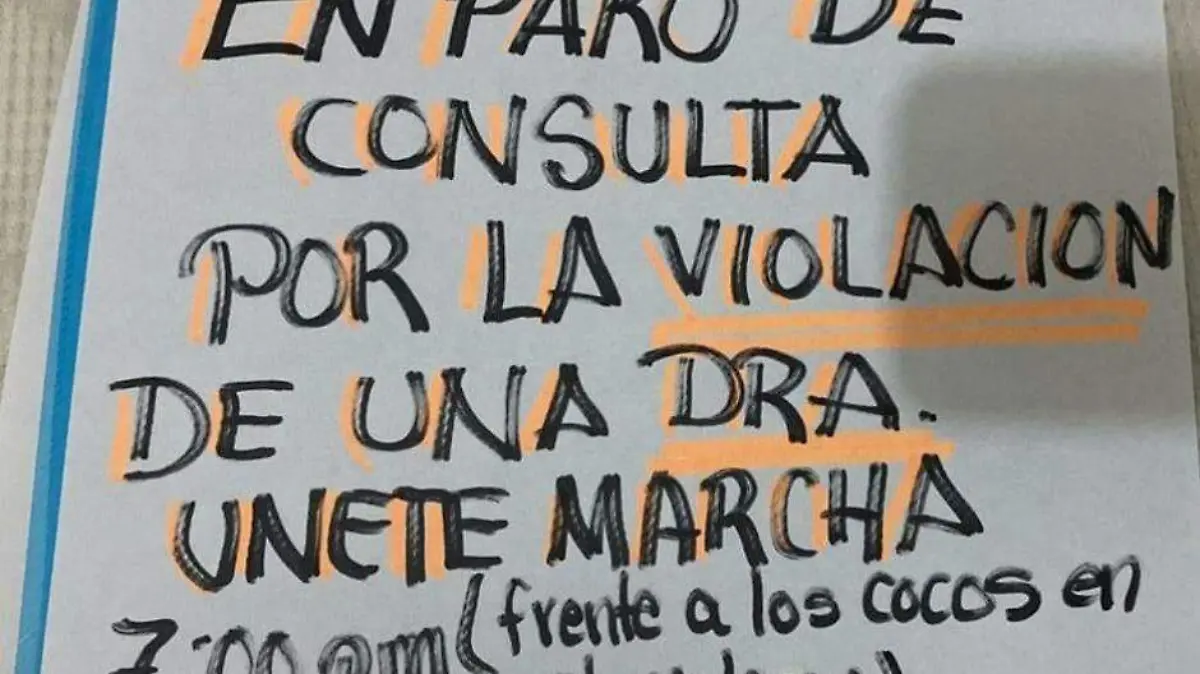 EN PARO DE
CONSULTA
POR LA VIOLACION
DE UNA DRA.
UNETE MARCHA
7:00 am (frente a los cocos en